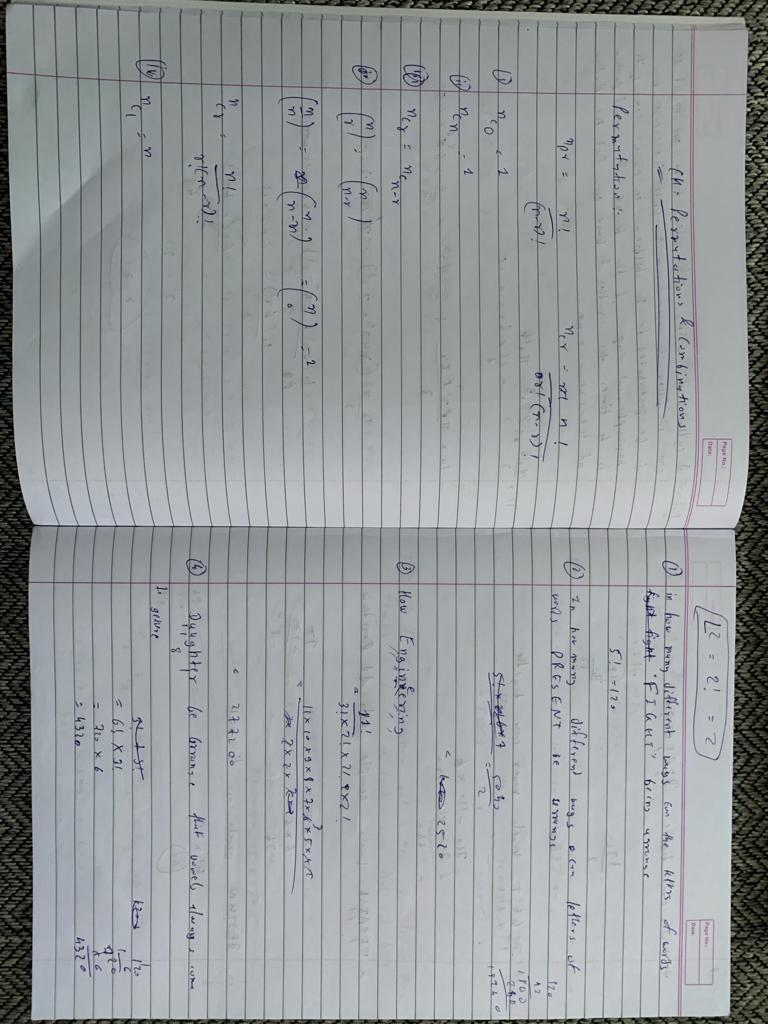 Page No.:
Date:
CH = Permutations & Combinations
Permutation:
nPr = n! / (n-r)!
nCr = n! / r! (n-r)!
(i) nC0 = 1
(ii) nCn = 1
(iii) nCr = nCn-r
(n r) = (n n-r)
(n n) = (n n-n) = (n 0) = 1
nCr = n! / r!(n-r)!
(iv) nC1 = n
Page No.:
Date:
L2 = 2! = 2
(1) in how many different ways can the letters of words
"FIGHT" being arrange
5! = 120
(2) In how many different ways can letters of
words PRESENT be arrange
5040 / 2
= 2520
(3) How Engineering
= 11! / 3! x 2! x 2! x 2!
277200
(4) Daughter be arrange that vowels always come
= 6! x 3!
= 720 x 6
= 4320
120
6
720
x 6
4320